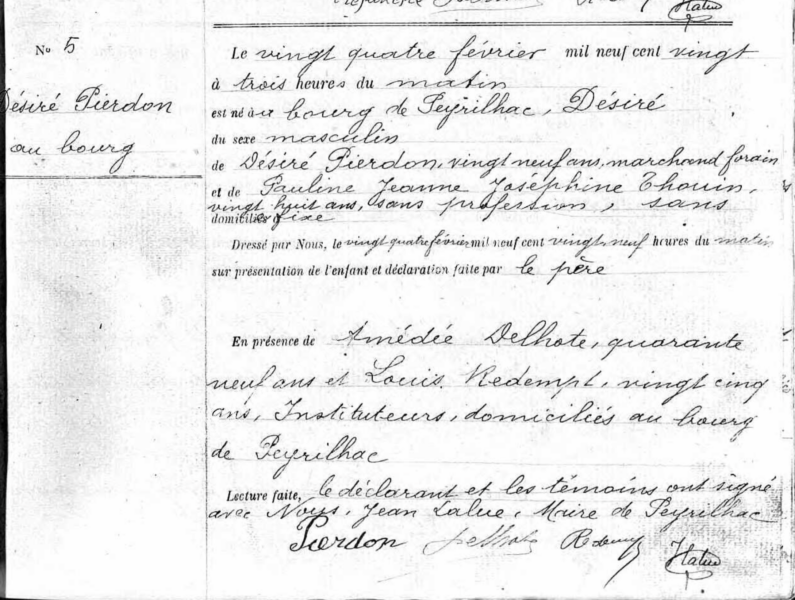 No 5
Désiré Pierdon
au bourg
Le vingt quatre février mil neuf cent vingt
à trois heures du matin
est né au bourg de Peyrilhac, Désiré
du sexe masculin
de Désiré Pierdon, vingt neuf ans, marchand forain
et de Pauline Jeanne Joséphine Thouin,
vingt huit ans, sans profession, sans
domiciliés fixe
Dressé par Nous, le vingt quatre février mil neuf cent vingt, neuf heures du matin
sur présentation de l'enfant et déclaration faite par le père
En présence de Amédée Delhote, quarante
neuf ans et Louis Redempt, vingt cinq
ans, Instituteurs, domiciliés au bourg
de Peyrilhac
Lecture faite, le déclarant et les témoins ont signé
avec Nous, Jean Lalue, Maire de Peyrilhac
Pierdon Delhote